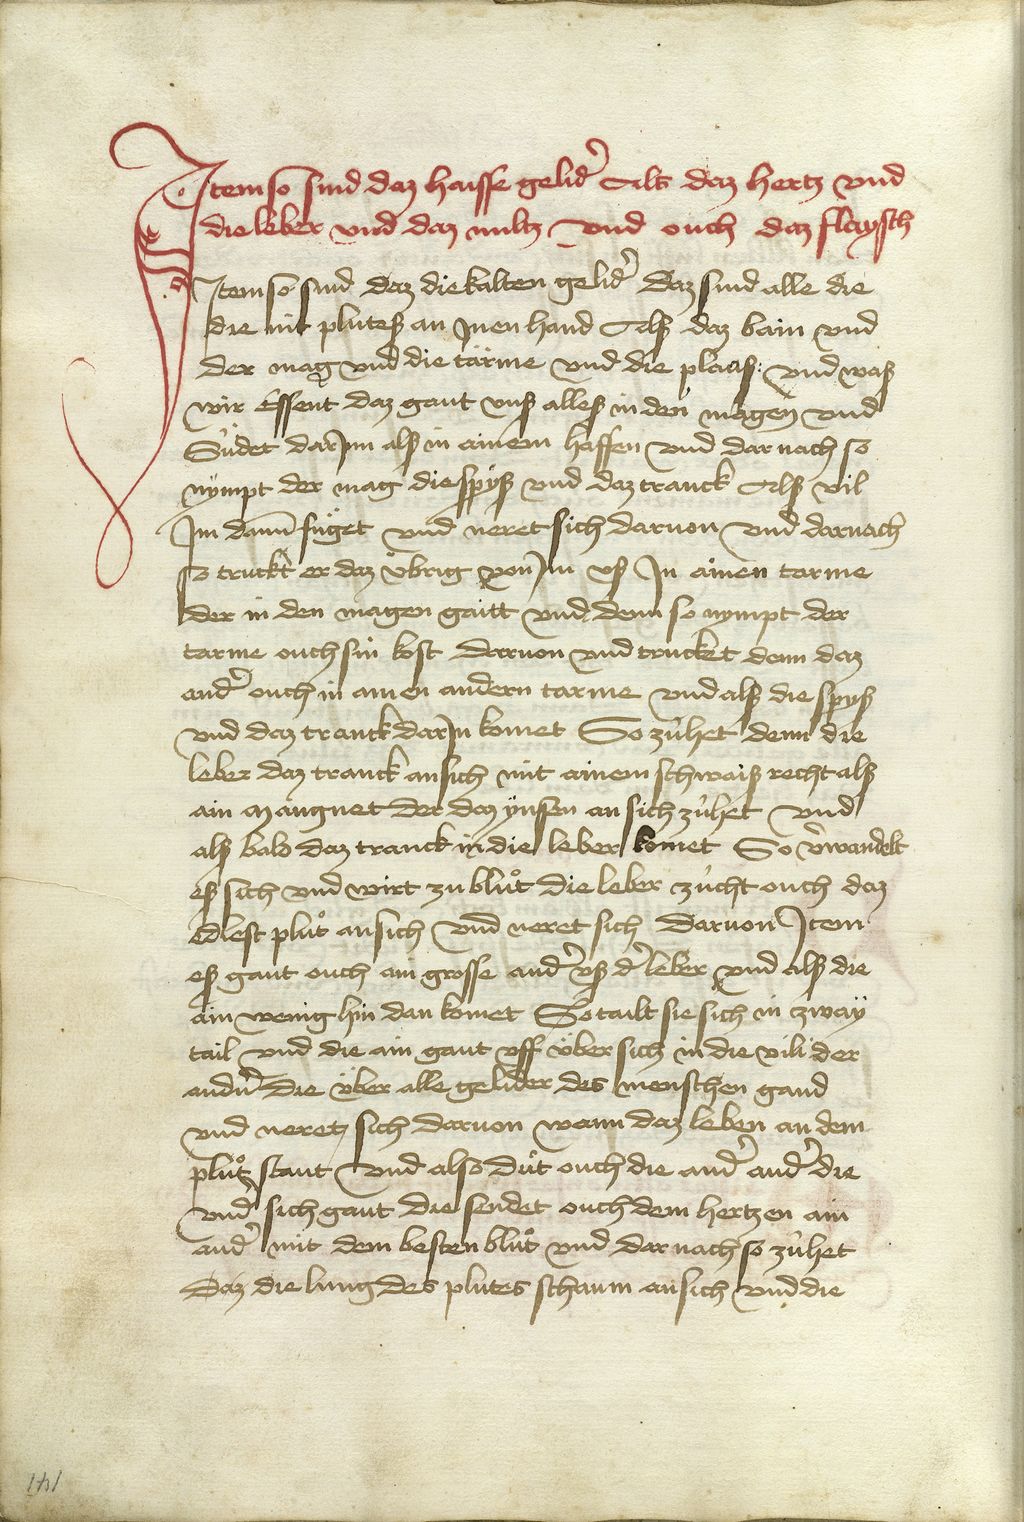 Item so sind daz haisse gelid᷑ Als daz hertz vnd
die leber vnd daz miltz vnd ouch daz flaysch
Item so sind daz die kalten gelid᷑ Daz sind alle die
die nit pluteß an Inen hand Alß daz bain vnd
der mag vnd die tärme vnd die plaaß vnd waß
wir Essent daz gaut vnß alleß in den magen vnd
Südet darJnn alß in ainem haffen vnd dar nach so
nympt der mag die spyß vnd daz tranck Alß vil
Im dann füget vnd neret sich daruon vnd darnach
so truckt er daz übrig von Im vß In ainen tarme
der in den magen gaitt vnd denn so nympt der
tarme ouch sin kost daruon vnd trucket denn daz
and᷑ ouch in ainen andern tarme vnd alß die spyß
vnd daz tranck darJn komet So zühet denn die
leber daz tranck an sich mit ainem schwaiß recht alß
ain Mangnet der daz ynsen an sich zühet vnd
alß bald daz tranck in die leber komet So v᷑wandelt
eß sich vnd wirt zu blůt die leber zücht ouch daz
Edlest plůt an sich vnd neret sich daruon Item
eß gaut ouch ain grosse aud᷑ vß d᷑ leber vnd alß die
ain wenig hin dan komet So tailt sie sich in zway
tail vnd die ain gaut vff über sich in die vili der
audn᷑ die über alle gelider des menschen gand
vnd neret sich daruon wann daz leben an dem
plůtz staut vnd also důt ouch die and᷑ aud᷑ die
vnd᷑ sich gaut die sendet ouch dem hertzen ain
aud᷑ mit dem besten blůt vnd dar nach so zühet
Daz die lung des plutes schaum an sich vnd die
141